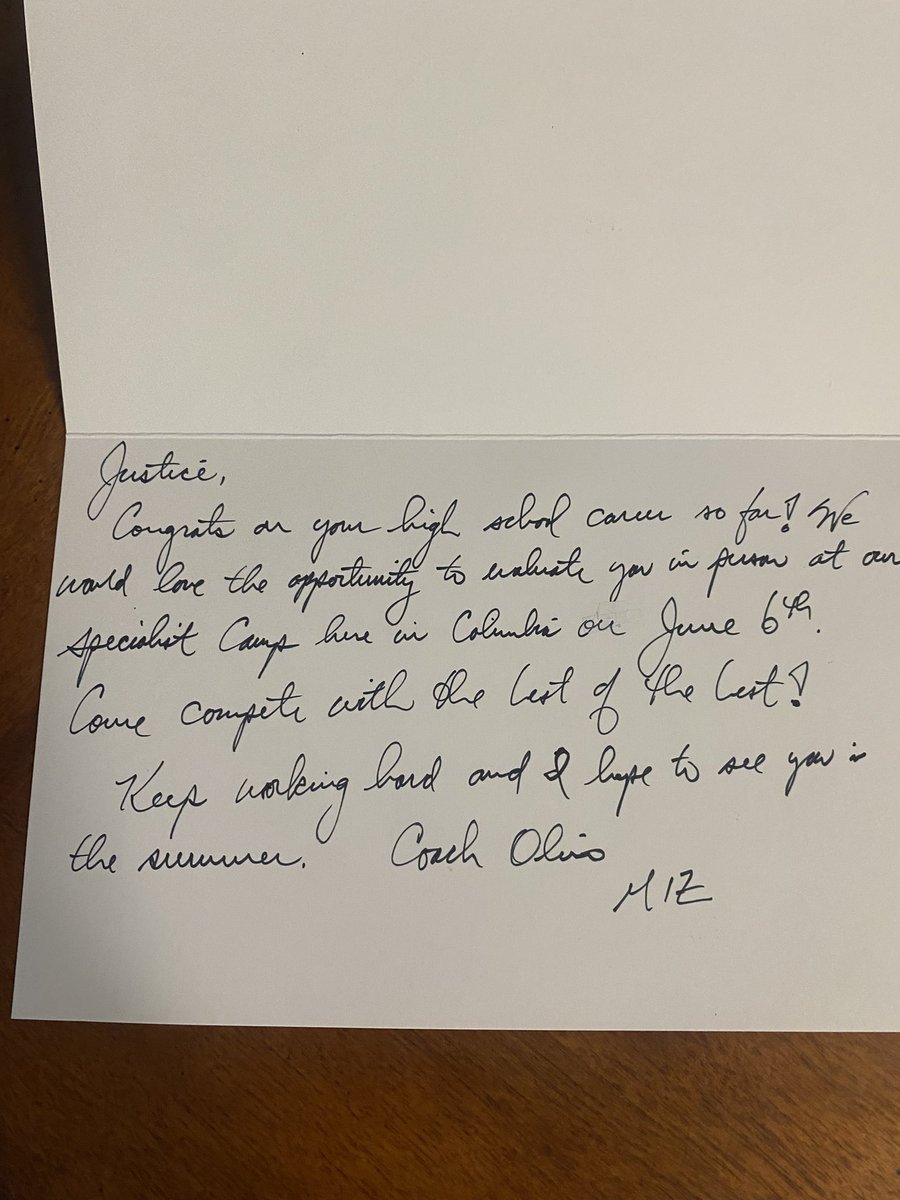 Justice,
Congrats on your high school career so far! We
would love the opportunity to evaluate you in person at our
specialist Camp here in Columbia on June 6th.
Come compete with the best of the best!
Keep working hard and I hope to see you in
the summer. Coach Olivo
MIZ